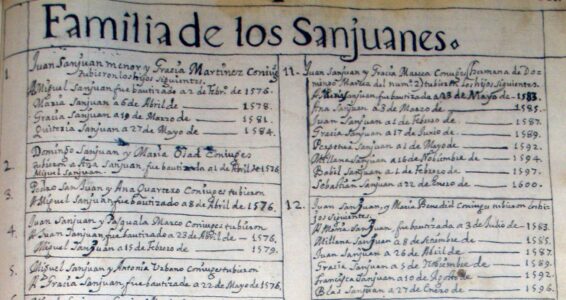 Familia de los Sanjuanes.
1.
Juan Sanjuan menor y Gracia Martinez Coniuges
tubieron los hijos siguientes.
A Miguel Sanjuan fue bautizado a 2 de Febro. de 1576.
Maria Sanjuan a 6 de Abril de — 1578.
Gracia Sanjuan a 19 de Marzo de — 1581.
Quiteria Sanjuan a 27 de Mayo de — 1584.
2.
Domingo Sanjuan y Maria Coniuges
tubieron a Ana Sanjuan, fue bautizada a 1 de Abril de 1576
Miguel Sanjuan.
3.
Pedro Sanjuan y Ana Quartero Coniuges tubieron
A Miguel Sanjuan bautizado a 8 de Abril de 1576.
4.
Juan Sanjuan y Pasquala Marco Coniuges tubieron
A Juan Sanjuan fue bautizado a 23 de Abril de — 1576.
Miguel Sanjuan a 15 de Febrero de — 1579.
5.
Miguel Sanjuan y Antonia Urbano Coniuges tubieron
A Gracia Sanjuan, fue bautizada a 22 de Mayo de 1576
11.
Juan Sanjuan y Gracia Marcea Coniuges (hermana de Do-
mingo Marcea del num. 2) tubieron los hijos siguientes.
Sanjuan, fue bautizado a de Mayo de 1583.
Ana Sanjuan a 3 de Marzo de — 1585.
Juan Sanjuan a 1 de Febrero de — 1587.
Gracia Sanjuan a 17 de Junio de — 1589.
Perpetua Sanjuan a 21 de Mayo de — 1592.
Atillana Sanjuan a 16 de Noviembre de — 1594.
Babil Sanjuan a 1 de Febrero de — 1597.
Sebastian Sanjuan a 22 de Enero de — 1600.
12.
Juan Sanjuan, y Maria Benedid coniuges tubieron los hi-
jos siguientes.
A Maria Sanjuan, fue bautizada a 3 de Julio de 1583.
Atillana Sanjuan a 8 de Setiembre de — 1585.
Juan Sanjuan a 26 de Abril de — 1587.
Gracia Sanjuan a 5 de Nobiembre de — 1589.
Francisca Sanjuan a 10 de Agosto de — 1592.
Blas Sanjuan a 27 de Enero de — 1596.